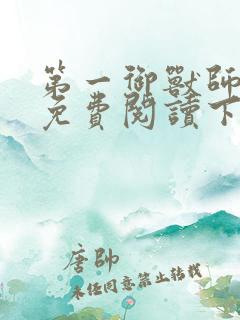 第一御獸師
免費閱讀下
唐帥
未經同意禁止轉載